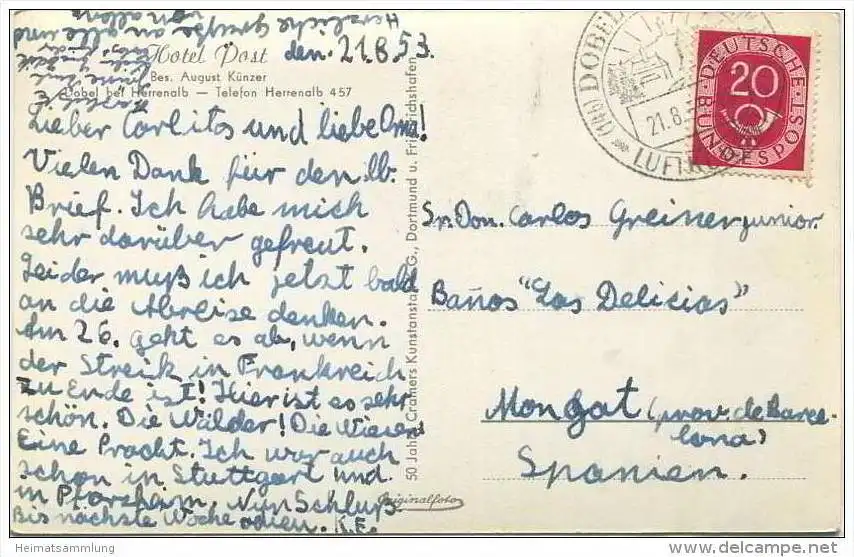 Hotel Post
den. 21.8.53.
Bes. August Künzer
Dobel bei Herrenalb — Telefon Herrenalb 457
Herzliche Grüße an alle und
von allen
Lieber Carlitos und liebe Oma!
Vielen Dank für den lb.
Brief. Ich habe mich
sehr darüber gefreut.
Leider muß ich jetzt bald
an die Abreise denken.
Am 26. geht es ab, wenn
der Streik in Frankreich
zu Ende ist! Hier ist es sehr
schön. Die Wälder! Die Wiesen!
Eine Pracht. Ich war auch
schon in Stuttgart und
in Pforzheim. Nun Schluß
Bis nächste Woche adieu. K.E.
50 Jahre Cramers Kunstanstalt A.G., Dortmund u. Friedrichshafen
Originalfoto
(14b) DOBEL
21.8.5
LUFTK
DEUTSCHE BUNDESPOST
20
Sr. Don. Carlos Greiner junior.
Baños "Las Delicias"
Mongat (prov. de Barce-
lona)
Spanien.
Heimatsammlung
delcampe.net